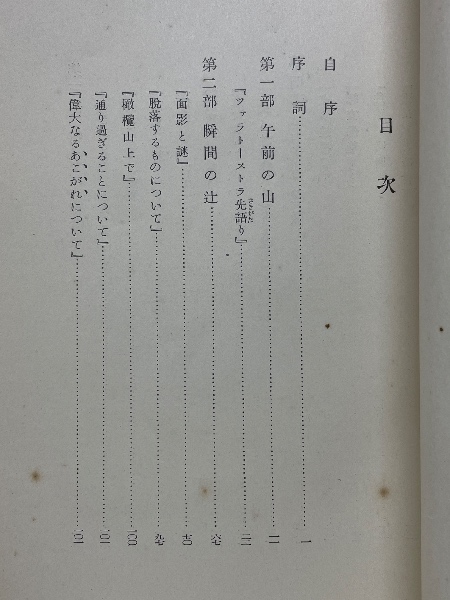 目次
自序
序詞 一
第一部 午前の山 一一
『ツァラトーストラ先語り』 二一
さきがた
第二部 瞬間の辻 六七
『面影と謎』 七〇
『脱落するものについて』 九七
『橄欖山上で』 一〇〇
『通り過ぎることについて』 一〇一
『偉大なるあこがれについて』 一〇一